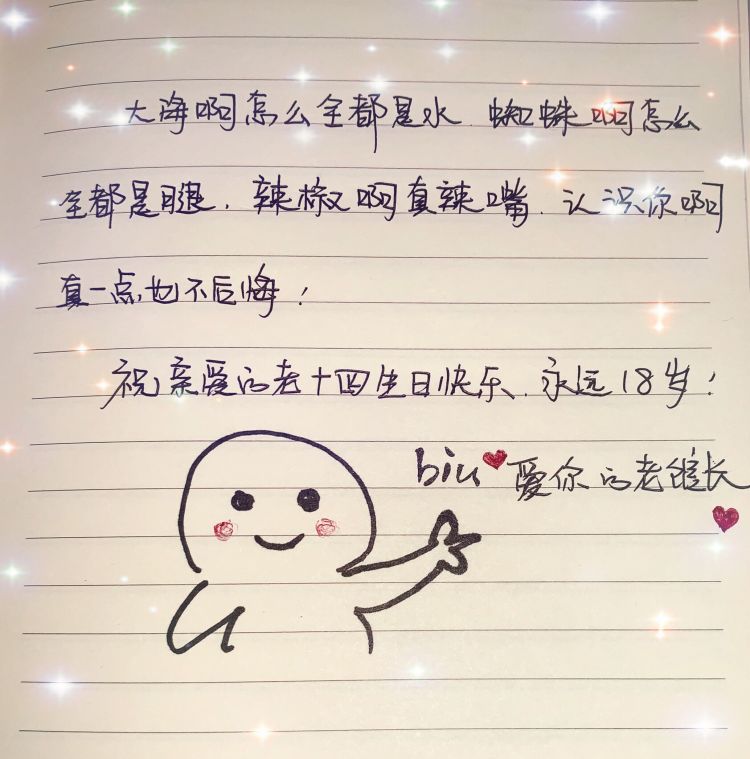 大海啊怎么全都是水.蜘蛛啊怎么
全都是腿.辣椒啊真辣嘴.认识你啊
真一点也不后悔!
祝亲爱的老十四生日快乐.永远18岁!
biu 爱你的老馆长